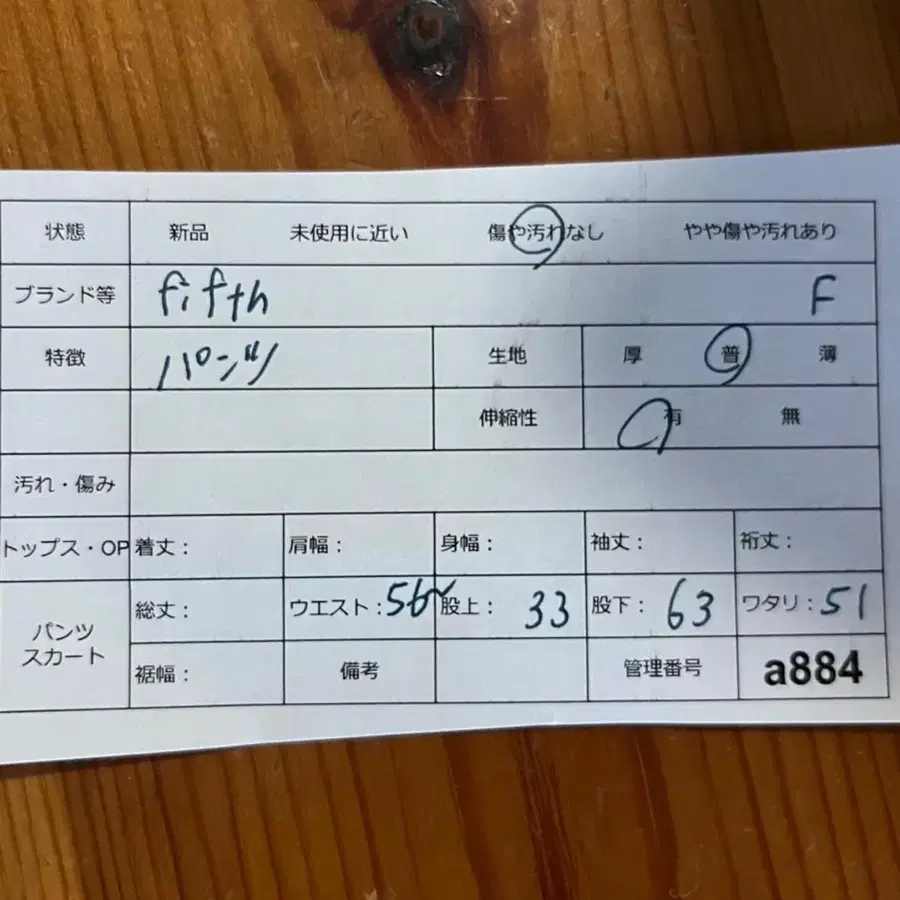 状態 新品 未使用に近い 傷や汚れなし やや傷や汚れあり
ブランド等 fifth F
特徴 パンツ 生地 厚 普 薄
伸縮性 有 無
汚れ・傷み
トップス・OP 着丈： 肩幅： 身幅： 袖丈： 裄丈：
パンツ
スカート
総丈： ウエスト：56〜 股上： 33 股下： 63 ワタリ：51
裾幅： 備考 管理番号 a884